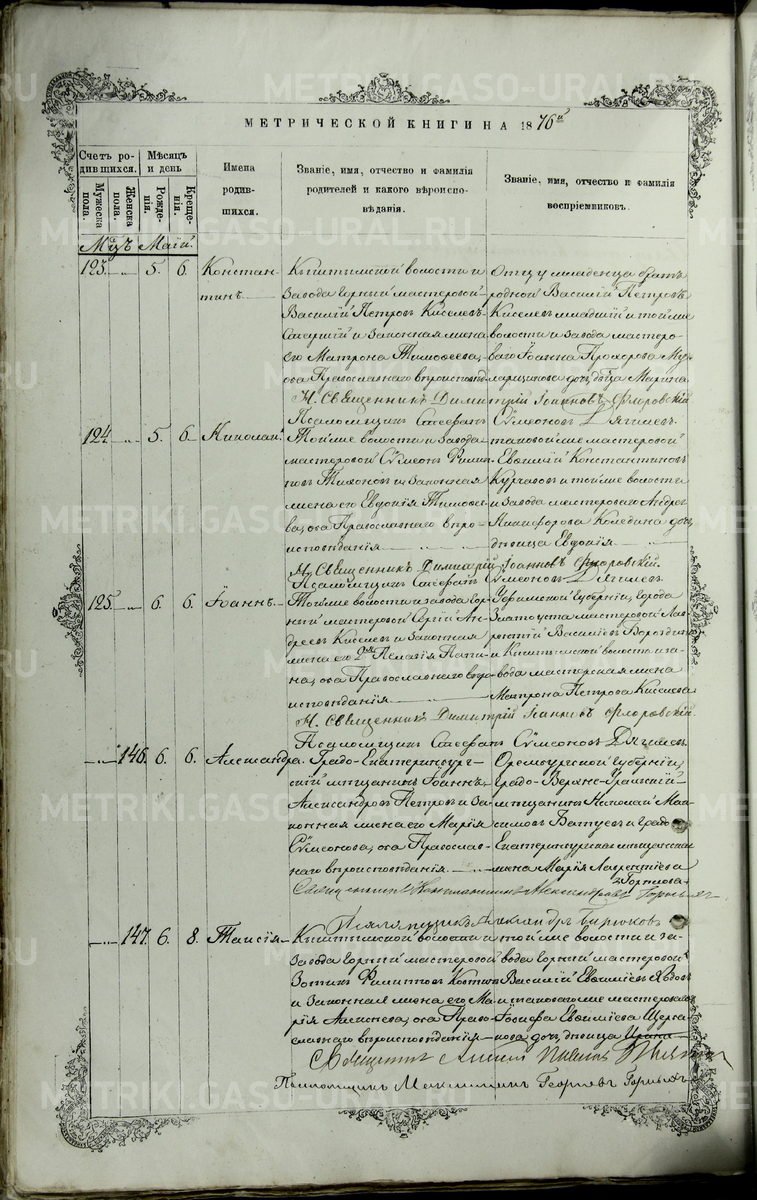 МЕТРИЧЕСКОЙ КНИГИ НА 1876й
Счетъ родившихся.
Мѣсяцъ и день
Имена родившихся.
Званіе, имя, отчество и фамилія родителей и какого вѣроисповѣданія.
Званіе, имя, отчество и фамилія воспріемниковъ.
Мужеска пола.
Женска пола.
Рожденія.
Крещенія.
Мцъ Маій.
123. 5. 6. Константинъ
Кыштымской волости и
Завода горный мастеровой
Василій Петровъ Киселевъ
Старшій и законная жена
его Матрона Тимофеева,
оба Православнаго вѣроисповѣд.
Отцу младенца братъ
родной Василій Петровъ
Киселевъ младшій и тойже
волости и завода мастерового
Іоанна Прохорова
дочь, дѣвица Марина
М. Священникъ Димитрій Іоанновъ Флоровскій
Псаломщикъ Стефанъ Сѵмеоновъ Дягилевъ
124. 5. 6. Николай.
Тойже волости и завода
мастеровой Сѵмеонъ Филипповъ
Тихоновъ и законная
жена его Евдокія Тимофеева,
оба Православнаго вѣроисповѣданія
таковойже мастеровой
Евфимій Константиновъ
и тойже волости
и завода мастероваго Андрея
Никифорова дочь
дѣвица Евдокія
М. Священникъ Димитрій Іоанновъ Флоровскій.
Псаломщикъ Стефанъ Сѵмеоновъ Дягилевъ
125. 6. 6. Іоаннъ.
Тойже волости и завода горный
мастеровой Сергій Андреевъ
Киселевъ и законная
жена его 2я Пелагія
оба Православнаго вѣроисповѣданія
Уфимской Губерніи, города
Златоуста мастеровой
Василіевъ
и Кыштымской волости и завода
мастерская жена
Матрона Петрова Киселева
М. Священникъ Димитрій Іоанновъ Флоровскій.
Псаломщикъ Стефанъ Сѵмеоновъ Дягилевъ
146. 6. 6. Александра.
Градо-Екатеринбургскій
мѣщанинъ Іоаннъ
Александровъ Петровъ и законная
жена его Марія
Сѵмеонова, оба Православнаго
вѣроисповѣданія.
Оренбургской Губерніи,
градо-Верхне-Уральскій
мѣщанинъ Николай Максимовъ
и градо-
Екатеринбургская мѣщанская
жена Марія Лаврентіева
Священникъ Константинъ Александровъ
Псаломщикъ Александръ Бирюковъ
147. 6. 8. Таисія
Кыштымской волости и
Завода горный мастеровой
Зотикъ Филиповъ Костинъ
и законная жена его Марія
Алексѣева, оба Православнаго
вѣроисповѣданія
тойже волости и завода
горный мастеровой
Василій Евфиміевъ
и таковагоже мастероваго
Іосифа Евфиміева
дочь, дѣвица Ирина
Священникъ
Псаломщикъ Максимиліанъ Георгіевъ
METRIKI.GASO-URAL.RU